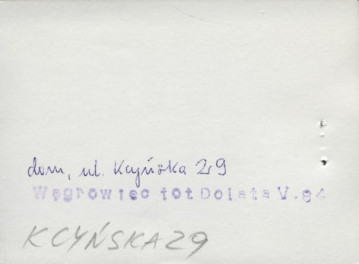 dom, ul. Kcyńska 29
Wągrowiec fot Dolata V.94
KCYŃSKA 29